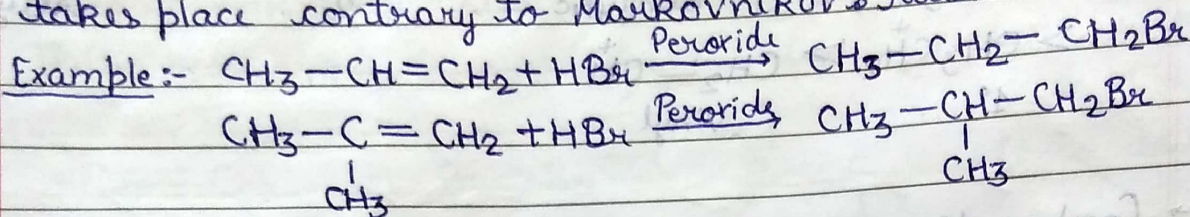 takes place contrary to Markovnikov's
Example :- CH3-CH=CH2+HBr Peroxide → CH3-CH2-CH2Br
CH3-C=CH2+HBr Peroxide → CH3-CH-CH2Br
CH3 CH3